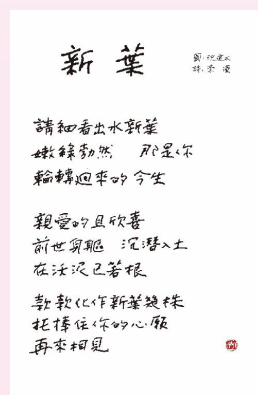 新葉
請細看出水新葉
嫩綠勃然 那是你
輪轉迴來的今生
親愛的且欣喜
前世身軀 沉潛入土
在沃泥已著根
款款化作新葉幾株
托捧住你的心願
再來相見